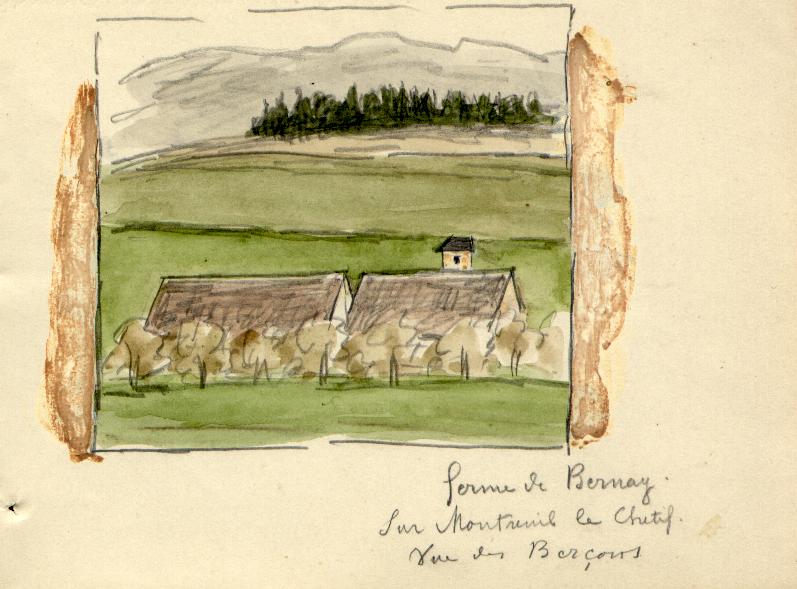 ferme de Bernay.
Sur Montreuil le Chetif.
Vue des Berçons